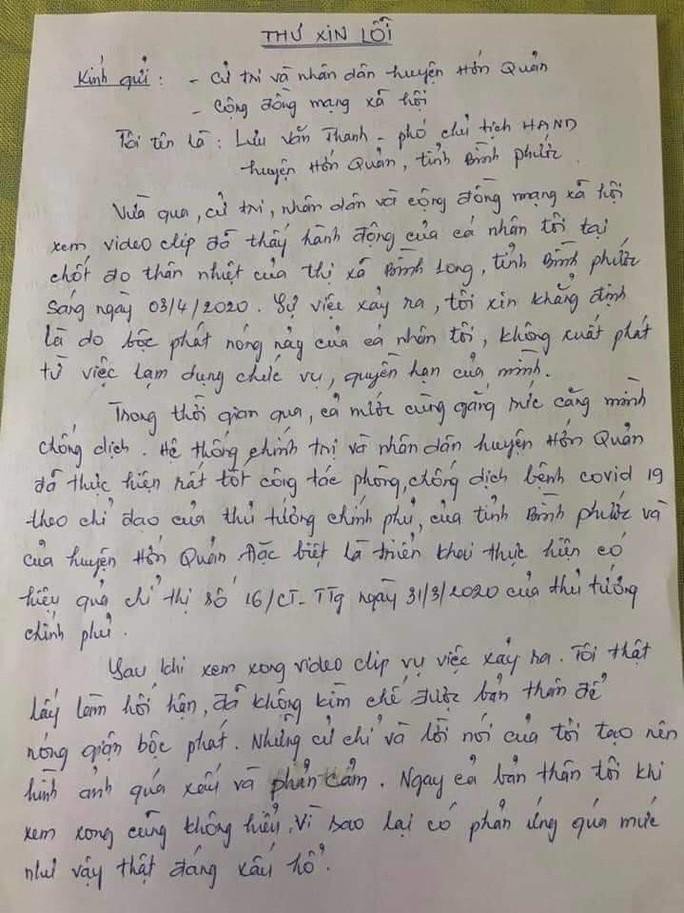 THƯ XIN LỖI
Kính gửi : - cử tri và nhân dân huyện Hớn Quản
- cộng đồng mạng xã hội
Tôi tên là : Lưu Văn Thanh - phó chủ tịch HĐND
huyện Hớn Quản, tỉnh Bình phước.
Vừa qua, cử tri, nhân dân và cộng đồng mạng xã hội
xem video clip đã thấy hành động của cá nhân tôi tại
chốt đo thân nhiệt của thị xã Bình Long, tỉnh Bình phước
sáng ngày 03/4/2020. Sự việc xảy ra, tôi xin khẳng định
là do bộc phát nóng nảy của cá nhân tôi, không xuất phát
từ việc lạm dụng chức vụ, quyền hạn của mình.
Trong thời gian qua, cả nước cùng gắng sức căng mình
chống dịch. Hệ thống chính trị và nhân dân huyện Hớn Quản
đã thực hiện rất tốt công tác phòng, chống dịch bệnh covid 19
theo chỉ đạo của thủ tướng chính phủ, của tỉnh Bình phước và
của huyện Hớn Quản Đặc biệt là triển khai thực hiện có
hiệu quả chỉ thị số 16/CT-TTg ngày 31/3/2020 của thủ tướng
chính phủ.
Sau khi xem xong video clip vụ việc xảy ra. Tôi thật
lấy làm hối hận, đã không kìm chế được bản thân để
nóng giận bộc phát. Những cử chỉ và lời nói của tôi tạo nên
hình ảnh quá xấu và phản cảm. Ngay cả bản thân tôi khi
xem xong cũng không hiểu, vì sao lại có phản ứng quá mức
như vậy thật đáng xấu hổ.